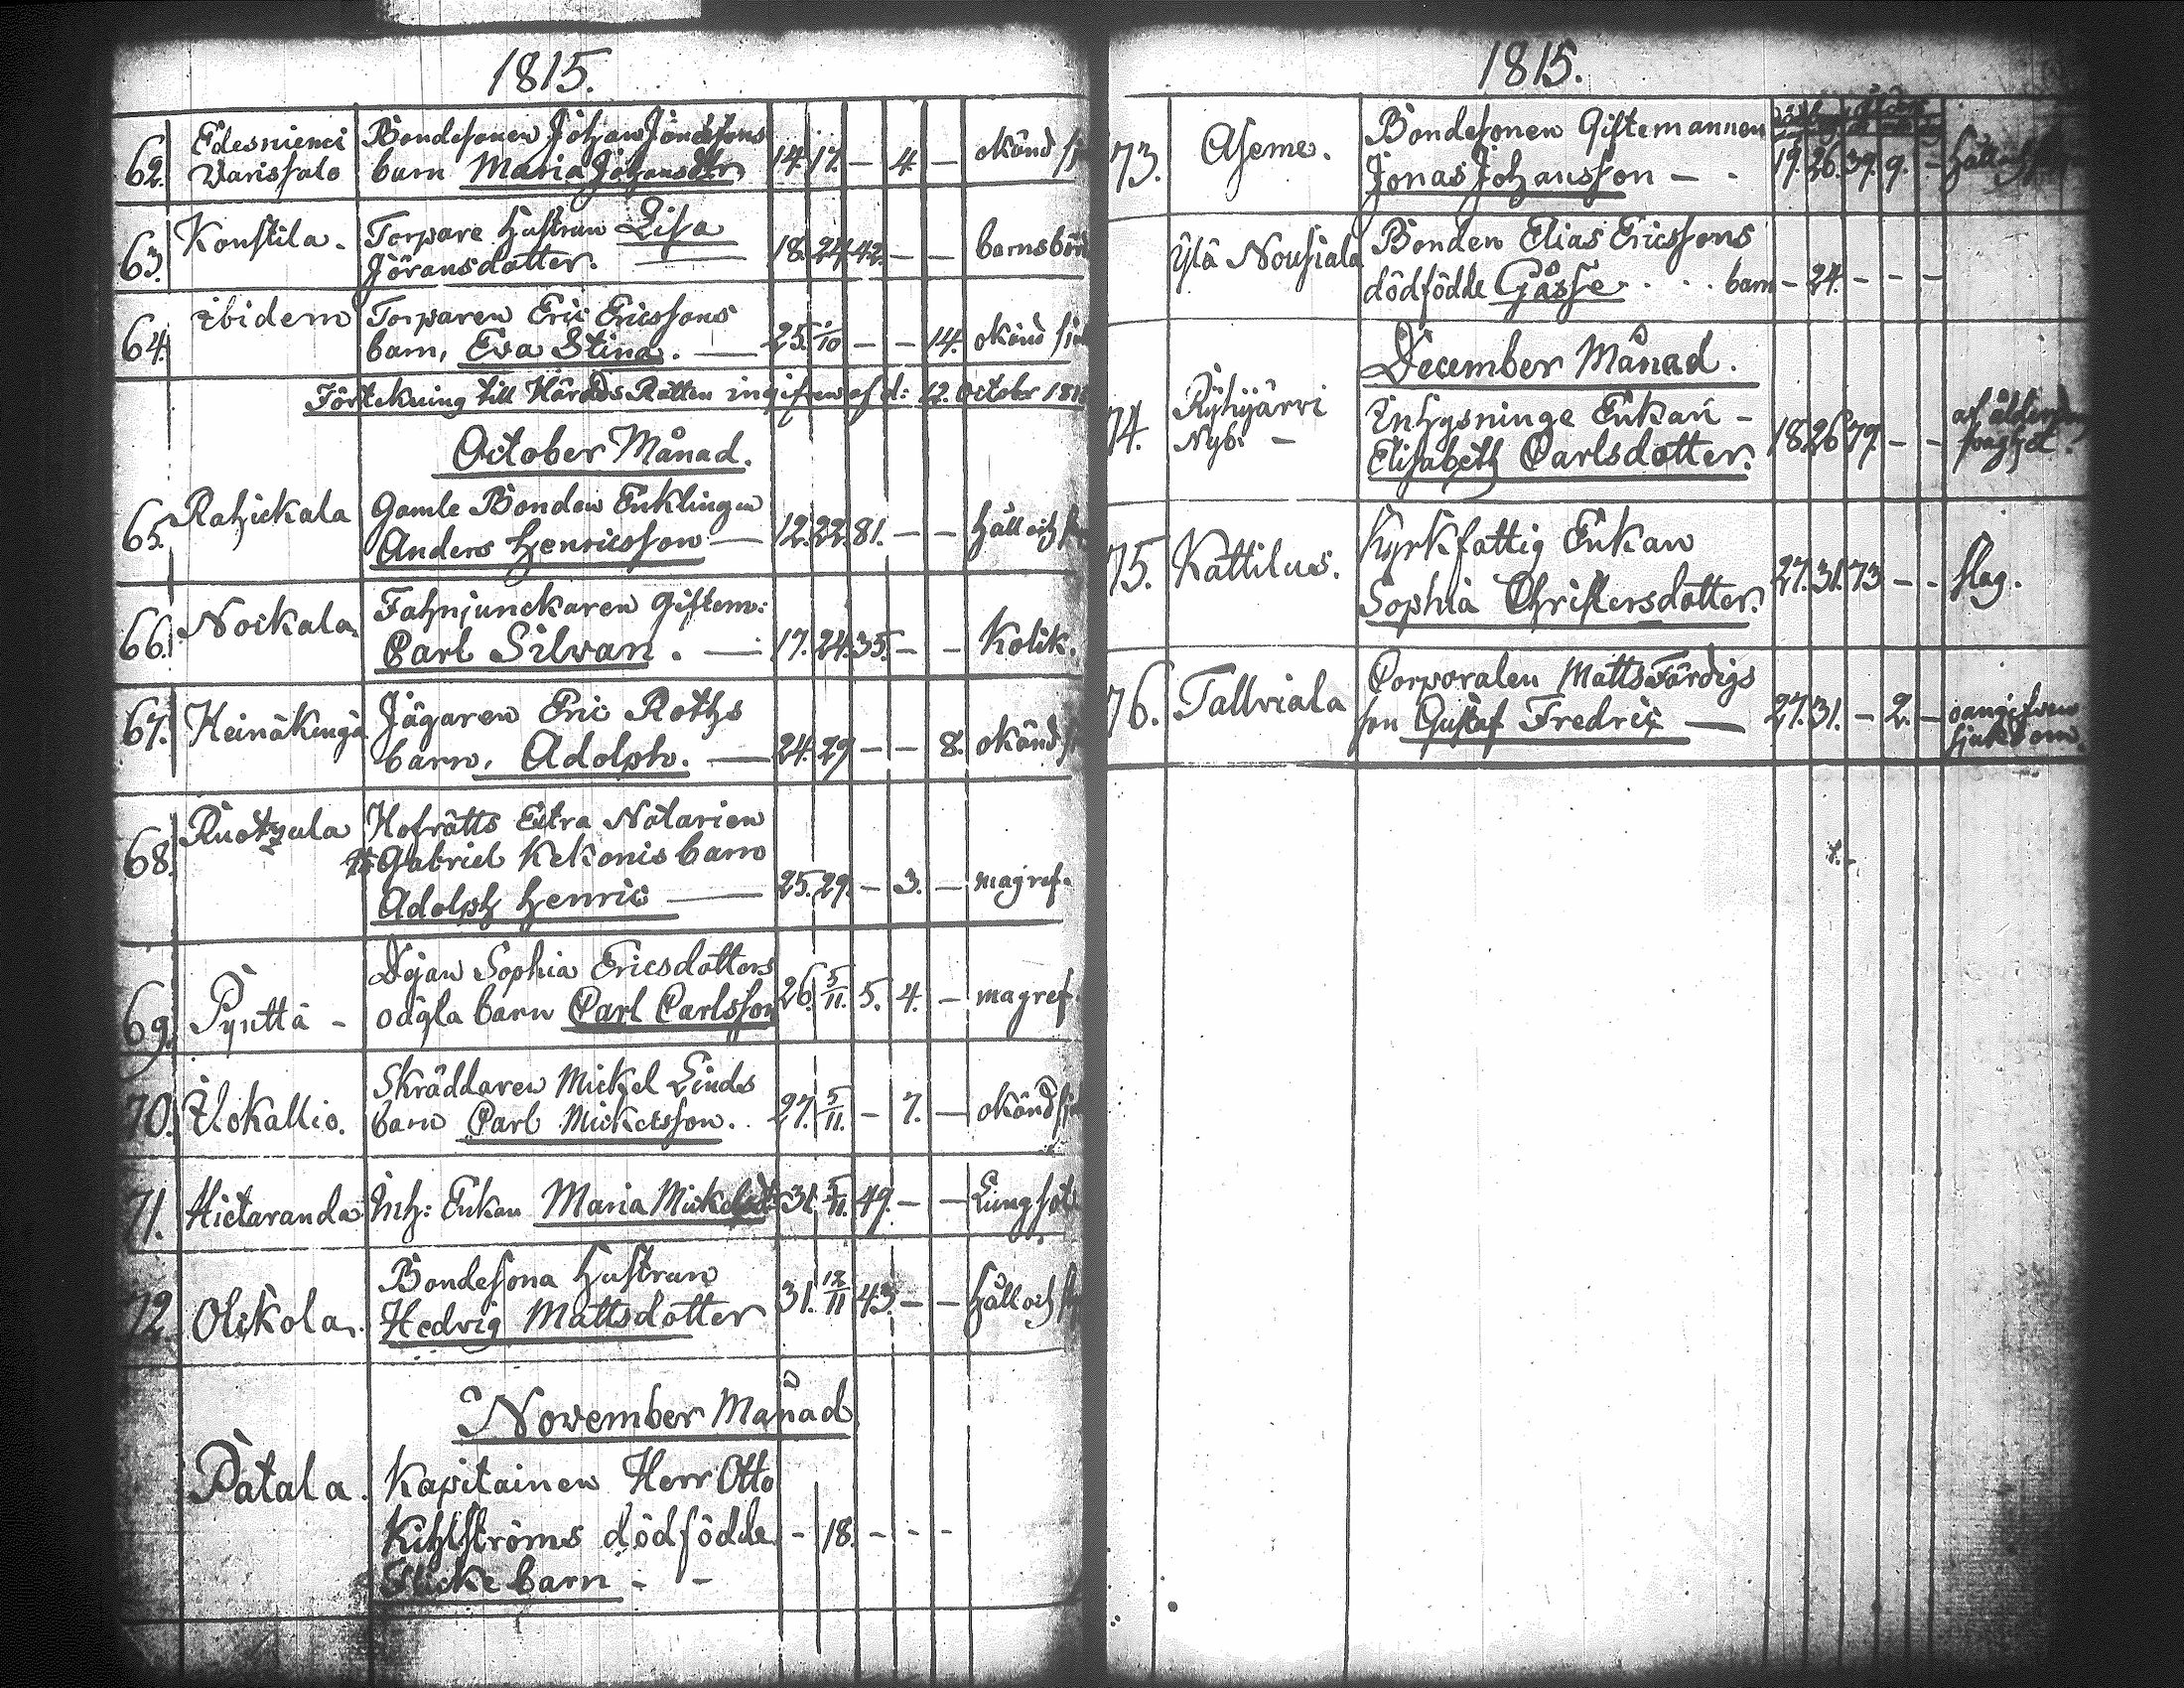 1815.
62. Edesniemi Bondesonen Johan Jondssons
Varissalo barn Maria Johansdtr 14. 17. — 4. — okänd
63. Konstila. Torpare hustrun Lisa
Jöransdotter. 18. 24. 42. — — barnsbörd
64. ibidem Torparen Eric Ericssons
barn, Eva Stina. — 25. 1/10 — — 14. okänd
Förtekning till Härads Rätten ingifven af d: 12. October
October Månad.
65. Rahickala Gamle Bonden Enklingen
Anders Henricsson — 12. 22. 81. — — håll och
66. Nockala Fahnjunckaren Giftem:
Carl Silvan. — 17. 24. 35. — — Kolik.
67. Heinäkingä Jägaren Eric Roths
barn, Adolph. — 24. 29 — — 8. okänd
68. Ruotzula Hofrätts Extra Notarien
Gabriel Kekonis barn
Adolph Henric — 25. 29. — 3. — magref.
69. Pynttä - Pijan Sophia Ericsdotters
oägta barn Carl Carlsson 26. 5/11. 5. 4. — magref.
70. Ilokallio. Skräddaren Mickel Linds
barn Carl Mickelsson. 27. 5/11. — 7. — okänd
71. Hietaranda Inh: Enkan Maria Mickelsdt 31. 5/11. 49. — — Lungsot
72. Olikola. Bondesona hustrun
Hedvig Mattsdotter 31. 12/11 43. — — håll och
November Månad
Patala. Kapitainen Herr Otto
Kihlströms dödfödde - 18. - - -
Flicke barn - -
1815.
73. Aseme. Bondesonen Giftemannen
Jonas Johansson — - 19. 26. 39. 9. - håll och
Ylä Nousiala Bonden Elias Ericssons
dödfödde Gåsse . . . barn - 24. - - -
December Månad.
74. Ryhyjärvi Inhysninge Enkan -
Nyb: — Elisabeth Carlsdotter. 18. 26. 79. — — af ålderdoms
svaghet.
75. Kattilus. Kyrkfattig Enkan
Sophia Christersdotter. 27. 31. 73 — — slag.
76. Tallviala Corporalen Matts Färdigs
son Gustaf Fredric — 27. 31. — 2. — oangifven
sjukdom.